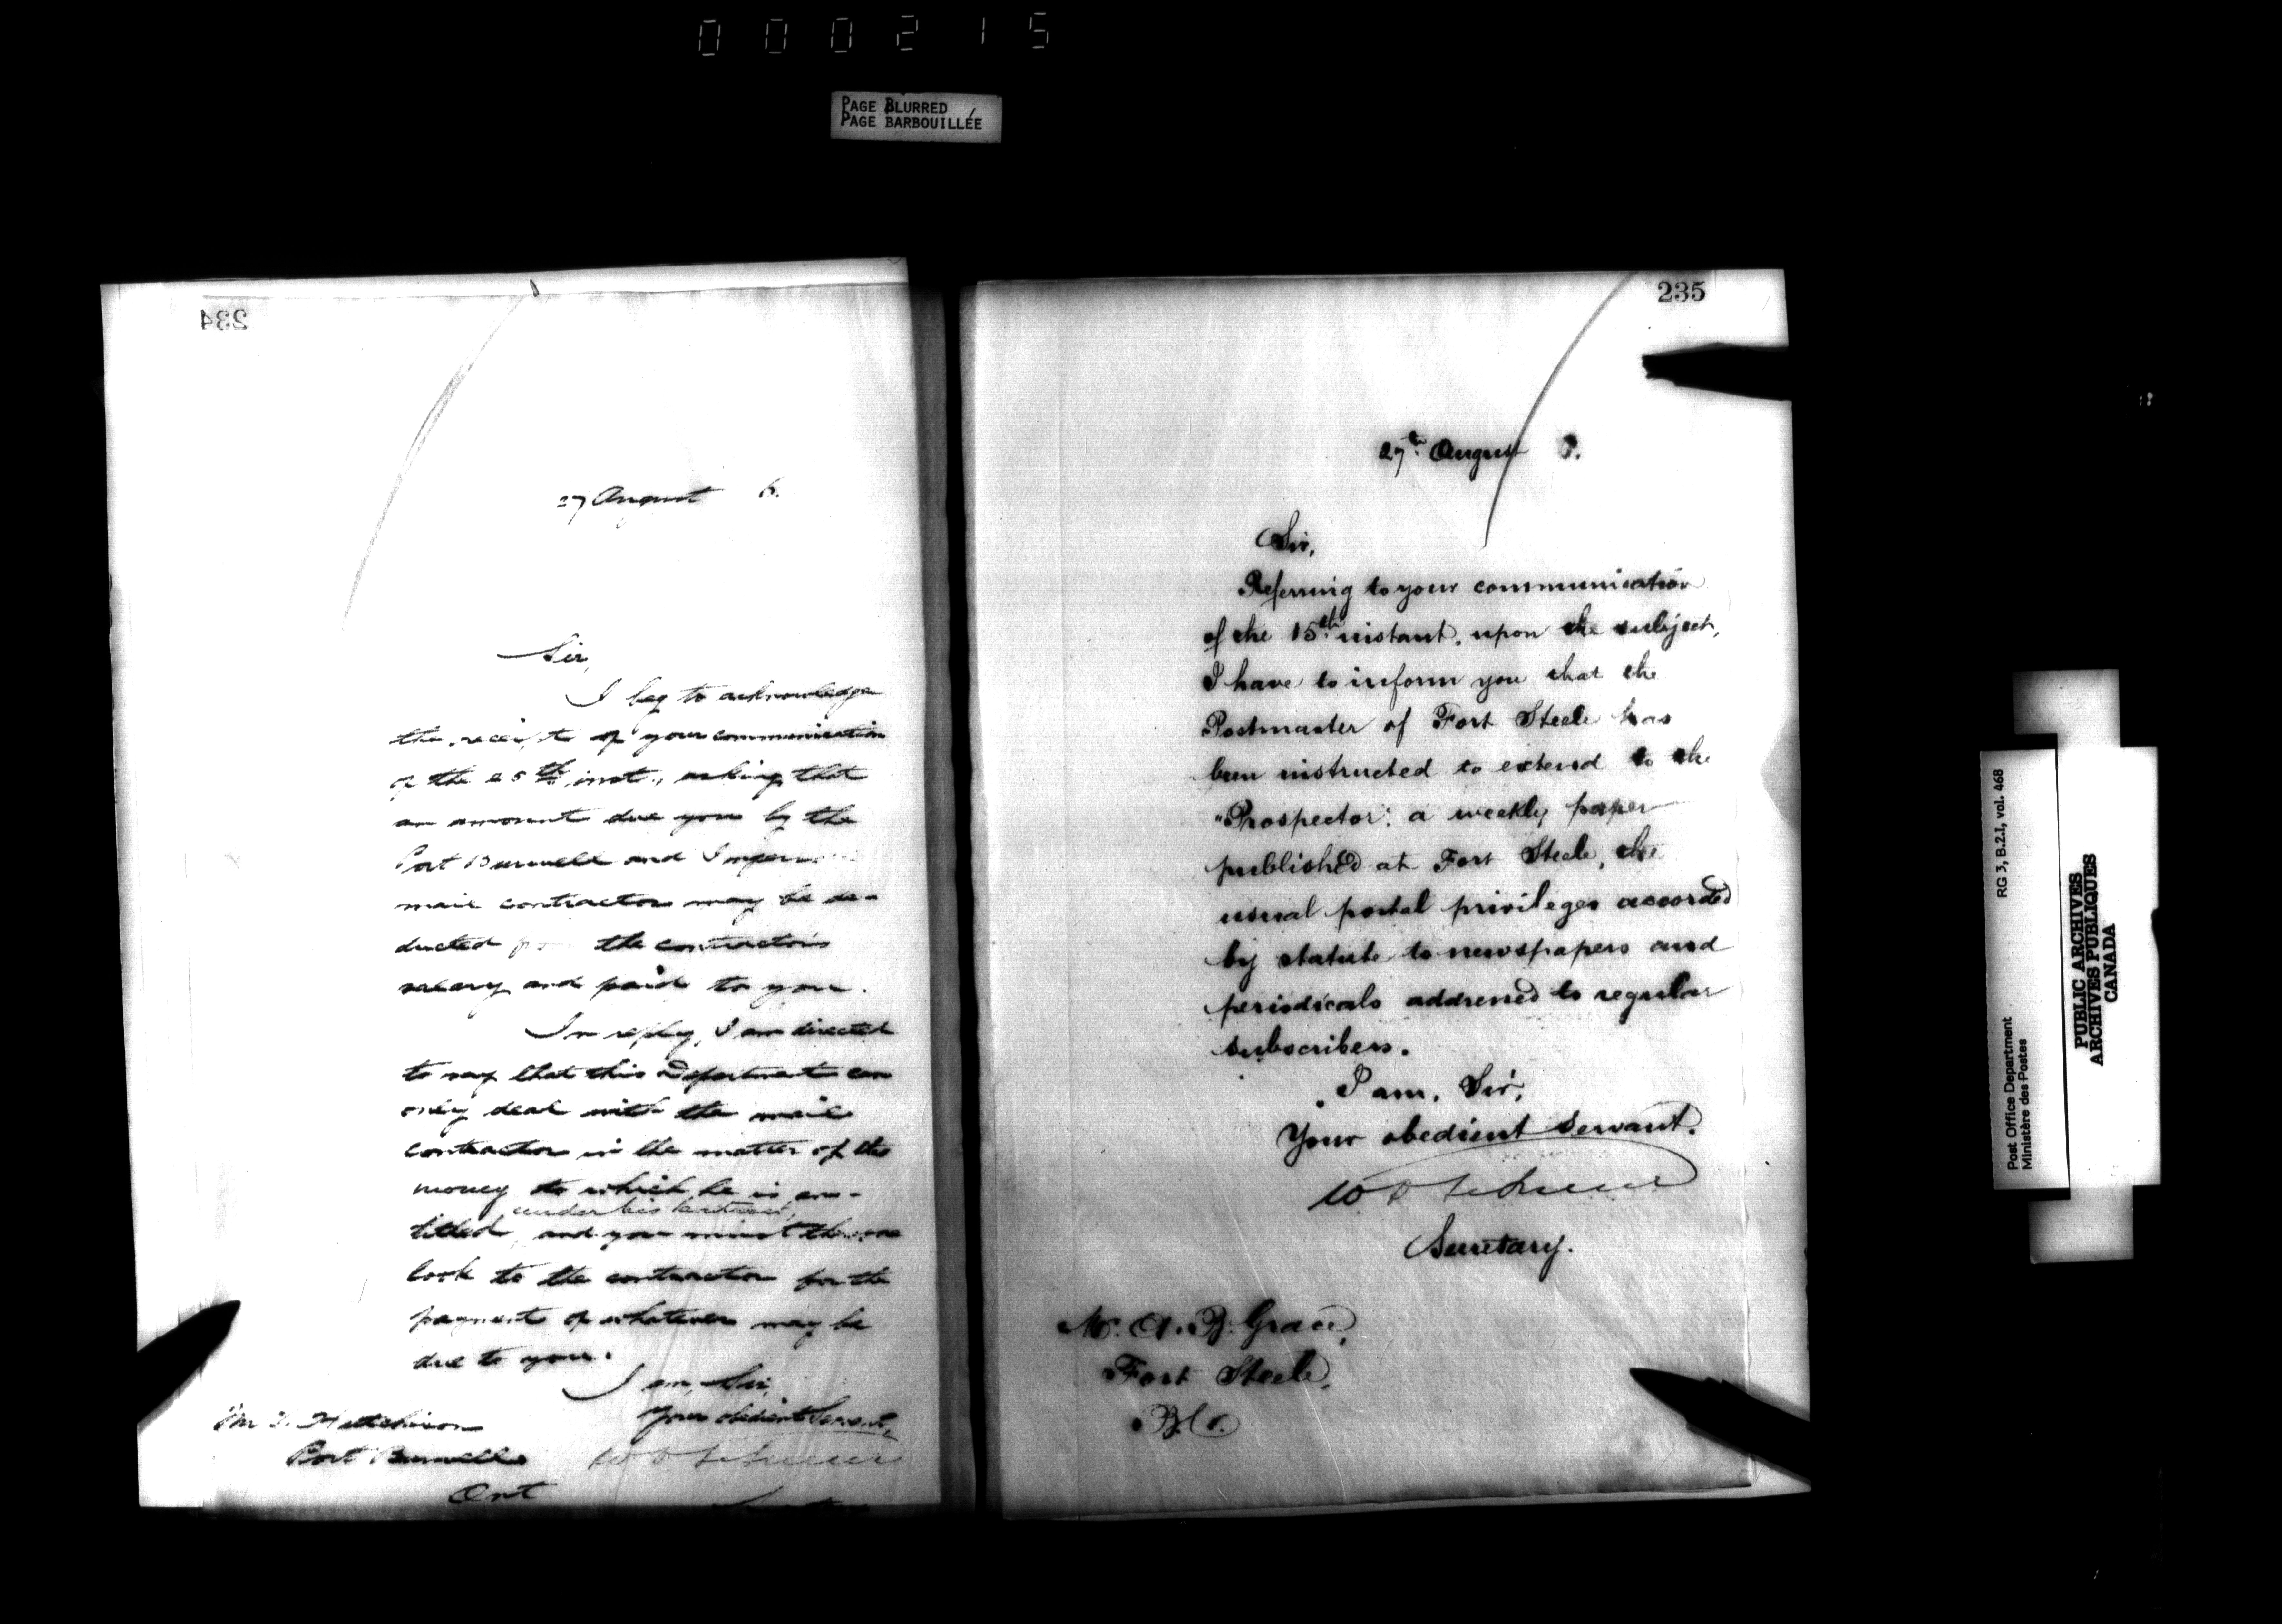 000215
PAGE BLURRED
PAGE BARBOUILLÉE
234
27 August 6.
Sir,
I beg to acknowledge
the receipt of your communication
of the 25th inst., asking that
an amount due you by the
Port Burwell and
mail contractor may be de-
ducted the contractor's
salary and paid to you.
In reply, I am directed
to say that this Department can
only deal with the mail
contractor in the matter of the
money to which he is en-
under his contract,
titled, and you must
look to the contractor for the
payment of whatever may be
due to you.
I am, Sir,
Your obedient Servant,
Hutchison
Port Burwell
Ont
235
27th August 6.
Sir,
Referring to your communication
of the 15th instant, upon the subject,
I have to inform you that the
Postmaster of Fort Steele has
been instructed to extend to the
"Prospector", a weekly paper
published at Fort Steele, the
usual postal privileges accorded
by statute to newspapers and
periodicals addressed to regular
subscribers.
I am, Sir,
Your obedient servant.
Secretary.
Mr. A. B. Grace,
Fort Steele,
B.C.
RG 3, B.2.I, vol. 468
Post Office Department
Ministère des Postes
PUBLIC ARCHIVES
ARCHIVES PUBLIQUES
CANADA